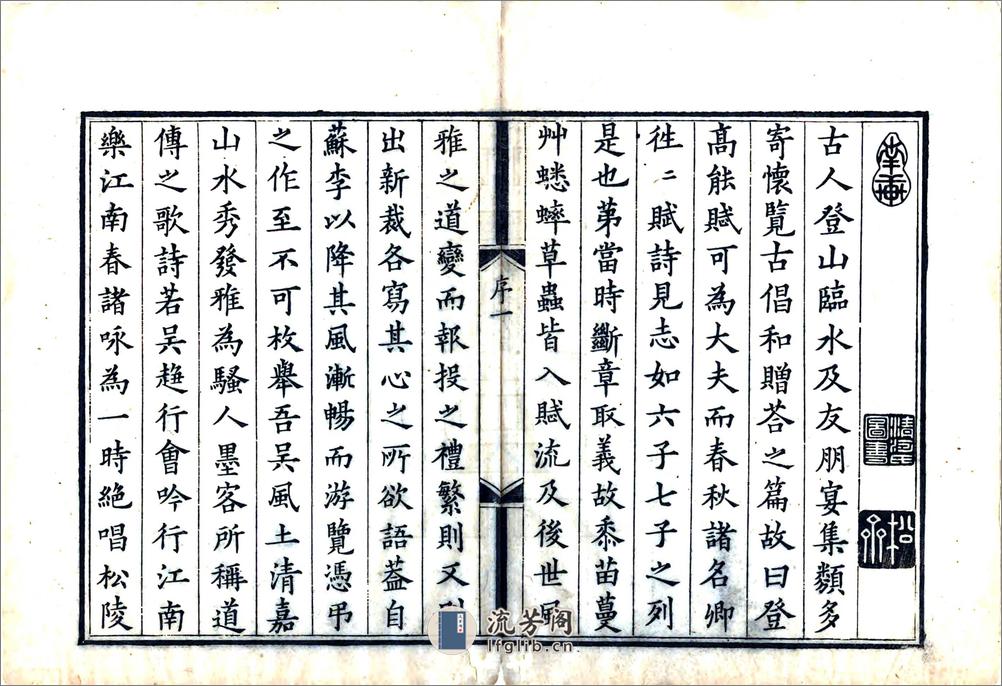 古人登山臨水及友朋宴集類多
寄懷覽古倡和贈荅之篇故曰登
高能賦可為大夫而春秋諸名卿
徃〻賦詩見志如六子七子之列
是也苐當時斷章取義故黍苗蔓
艸蟋蟀草蟲皆入賦流及後世風
雅之道變而報投之禮繁則又別
出新裁各寫其心之所欲語葢自
蘇李以降其風漸暢而游覽憑弔
之作至不可枚舉吾吳風土清嘉
山水秀發雅為騷人墨客所稱道
傳之歌詩若吳趨行會吟行江南
樂江南春諸咏為一時絕唱松陵
序一
流芳阁
lfglib.cn